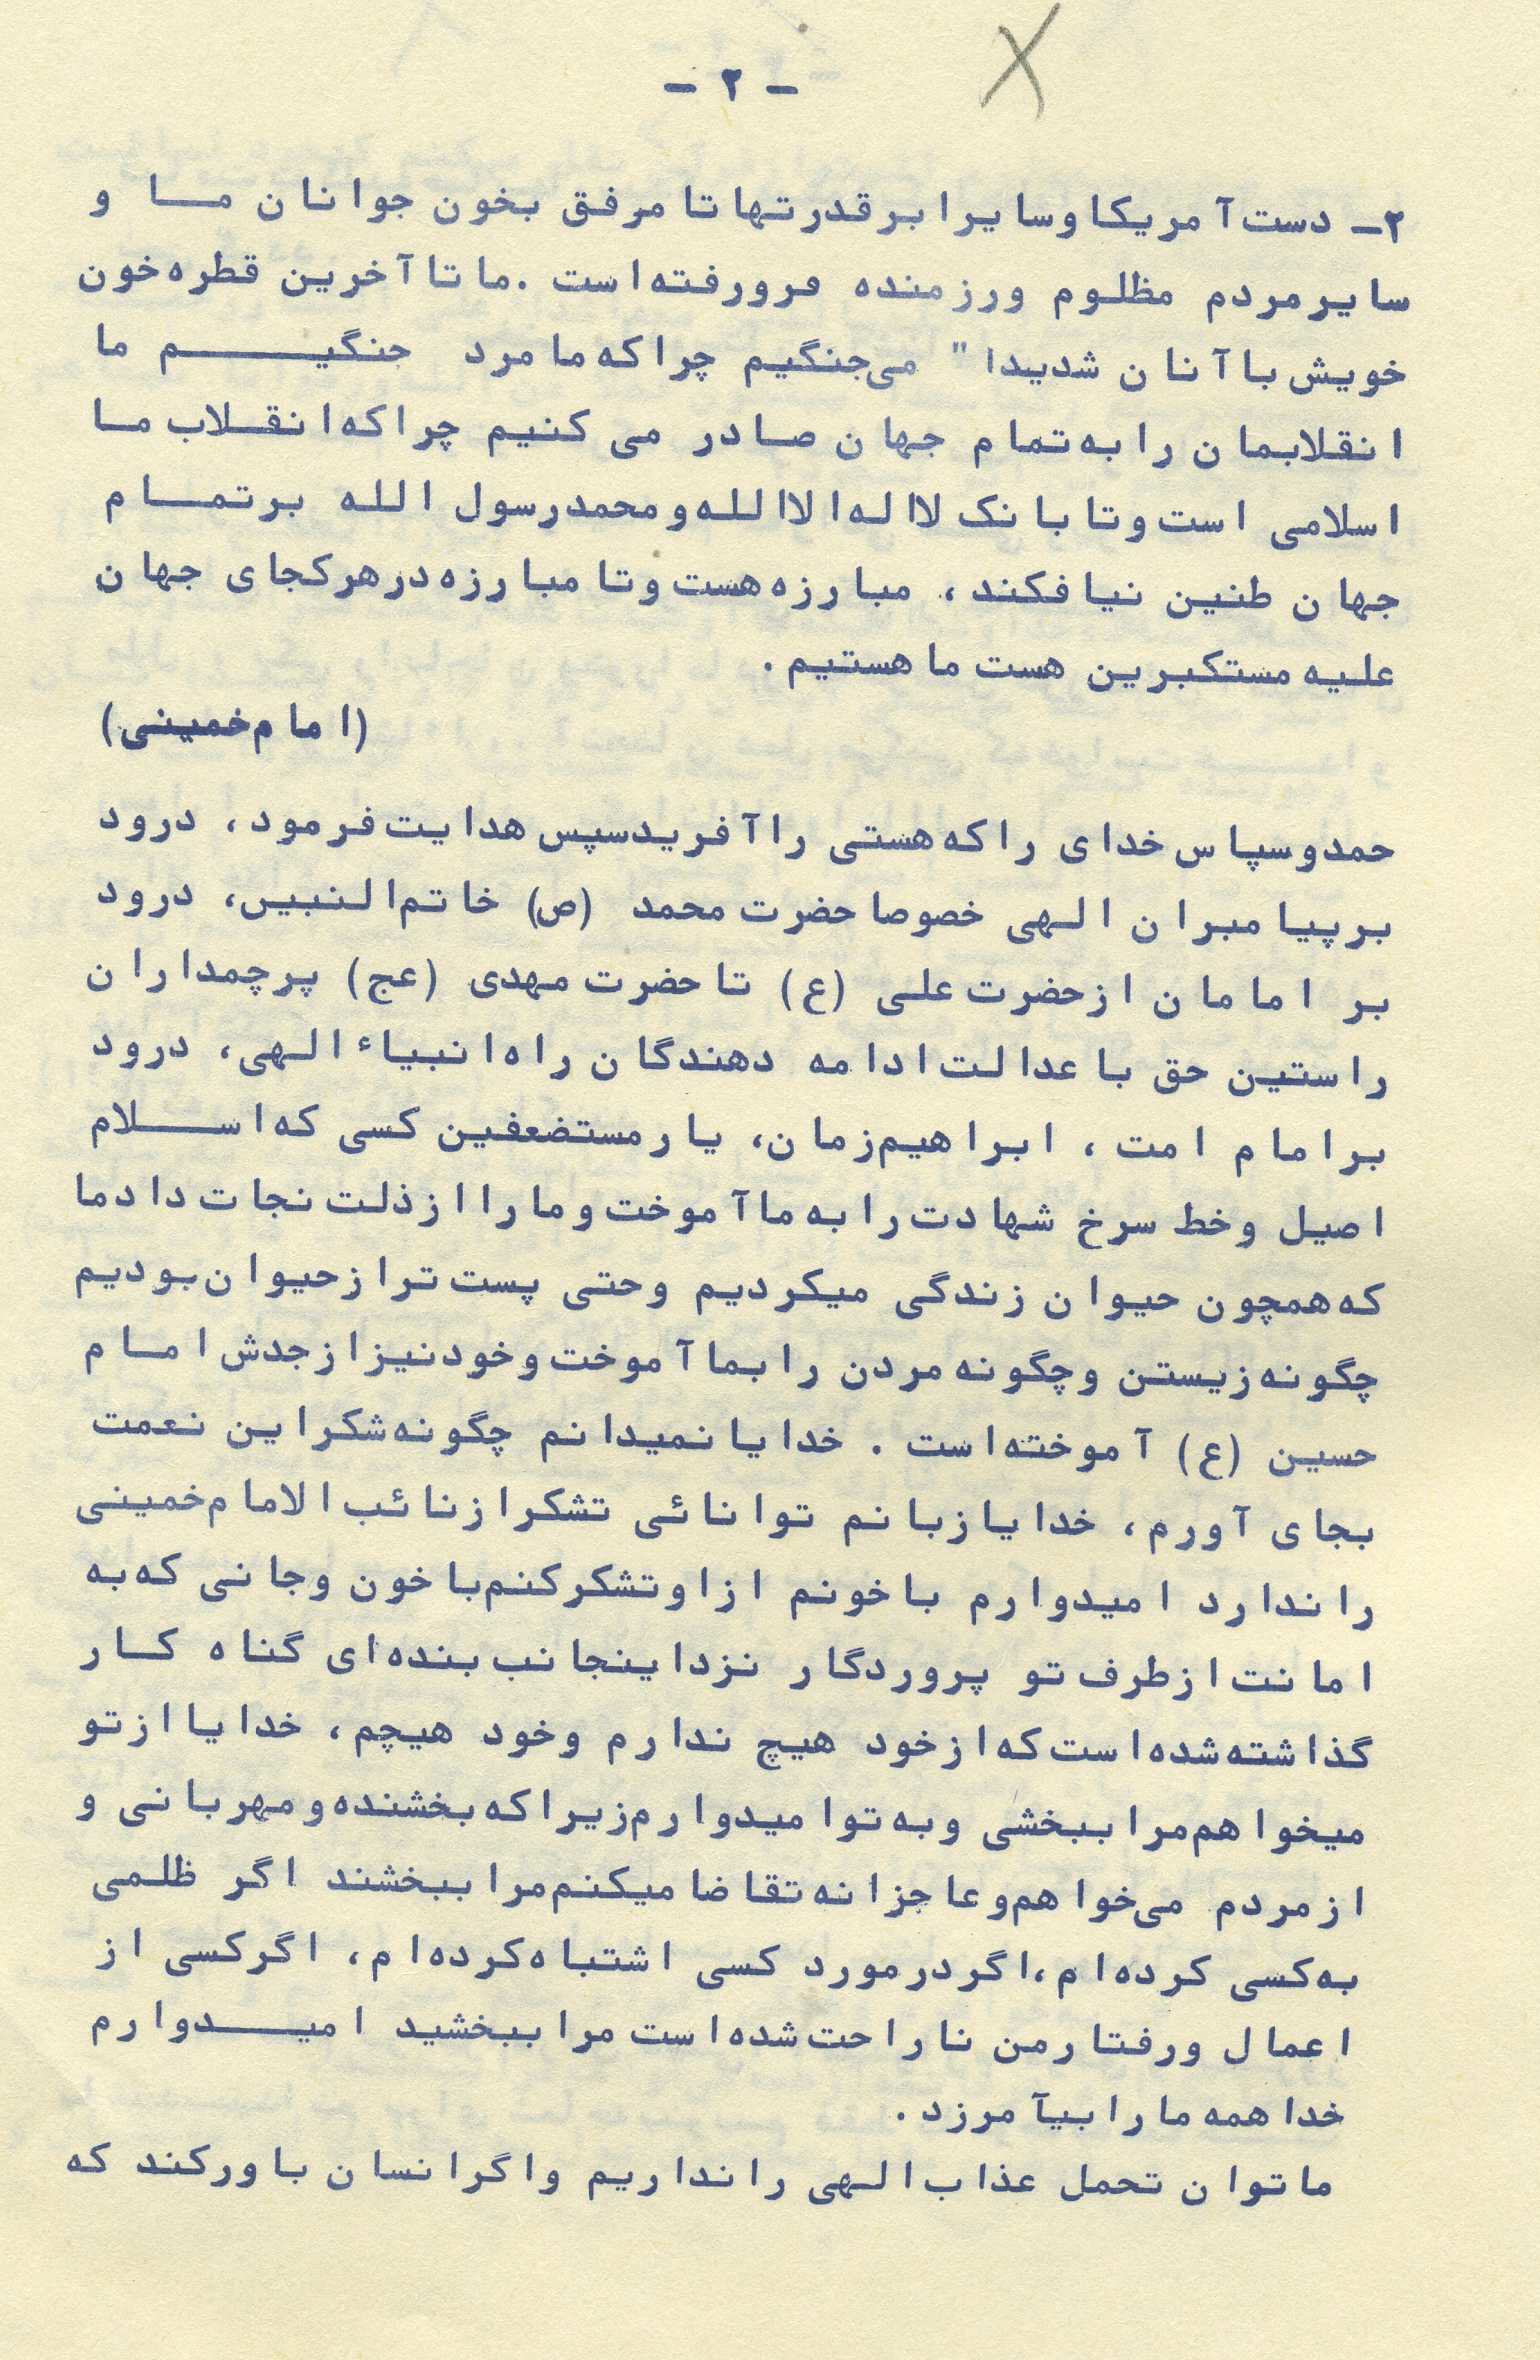 - ۲ -
۲- دست آمریکا و سایر ابرقدرتها تا مرفق بخون جوانان ما و
سایر مردم مظلوم ورزمنده فرورفته است . ما تا آخرین قطره خون
خویش با آنان شدیدا " می‌جنگیم چرا که ما مرد جنگیم ما
انقلابمان را به تمام جهان صادر می کنیم چرا که انقلاب ما
اسلامی است و تا بانک لااله الاالله و محمدرسول الله بر تمام
جهان طنین نیافکند ، مبارزه هست و تا مبارزه در هرکجای جهان
علیه مستکبرین هست ما هستیم .
(امام خمینی)
حمد و سپاس خدای را که هستی را آفرید سپس هدایت فرمود ، درود
بر پیامبران الهی خصوصا حضرت محمد (ص) خاتم النبیین ، درود
بر امامان از حضرت علی (ع) تا حضرت مهدی (عج) پرچمداران
راستین حق با عدالت ادامه دهندگان راه انبیاء الهی ، درود
بر امام امت ، ابراهیم زمان ، یار مستضعفین کسی که اسلام
اصیل وخط سرخ شهادت را به ما آموخت و ما را از ذلت نجات داد ما
که همچون حیوان زندگی میکردیم وحتی پست تر از حیوان بودیم
چگونه زیستن وچگونه مردن را بما آموخت و خود نیز از جدش امام
حسین (ع) آموخته است . خدایا نمیدانم چگونه شکر این نعمت
بجای آورم ، خدایا زبانم توانائی تشکر از نائب الامام خمینی
را ندارد امیدوارم با خونم از او تشکر کنم با خون وجانی که به
امانت از طرف تو پروردگار نزد اینجانب بنده ای گناه کار
گذاشته شده است که از خود هیچ ندارم وخود هیچم ، خدایا از تو
میخواهم مرا ببخشی وبه تو امیدوارم زیرا که بخشنده و مهربانی و
از مردم می‌خواهم و عاجزانه تقاضا میکنم مرا ببخشند اگر ظلمی
به کسی کرده ام ، اگر در مورد کسی اشتباه کرده ام ، اگر کسی از
اعمال ورفتار من ناراحت شده است مرا ببخشید امیدوارم
خدا همه ما را بیآمرزد .
ما توان تحمل عذاب الهی را نداریم و اگر انسان باور کند که